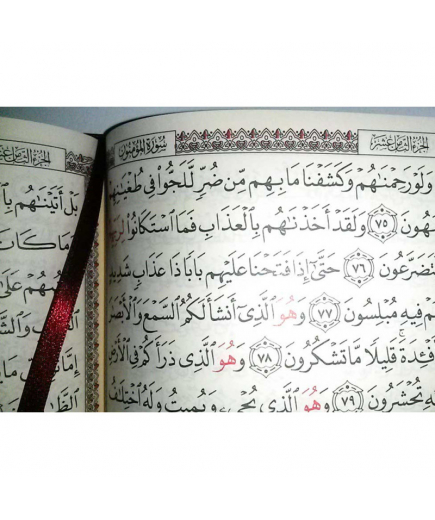 الجزء الثامن عشر
سورة المؤمنون
وَلَوْ رَحِمْنَٰهُمْ وَكَشَفْنَا مَا بِهِم مِّن ضُرٍّ لَّلَجُّوا۟ فِى طُغْيَٰنِهِمْ
هُونَ ٧٥ وَلَقَدْ أَخَذْنَٰهُم بِٱلْعَذَابِ فَمَا ٱسْتَكَانُوا۟
تَضَرَّعُونَ ٧٦ حَتَّىٰٓ إِذَا فَتَحْنَا عَلَيْهِم بَابًا ذَا عَذَابٍ شَدِيدٍ
مْ فِيهِ مُبْلِسُونَ ٧٧ وَهُوَ ٱلَّذِىٓ أَنشَأَ لَكُمُ ٱلسَّمْعَ وَٱلْأَبْصَٰرَ
فْـِٔدَةَ ۚ قَلِيلًا مَّا تَشْكُرُونَ ٧٨ وَهُوَ ٱلَّذِى ذَرَأَكُمْ فِى ٱلْأَرْضِ
هِ تُحْشَرُونَ ٧٩ وَهُوَ ٱلَّذِى يُحْىِۦ وَيُمِيتُ وَلَهُ ٱخْتِلَٰفُ
الجزء الثامن عشر
بَلْ أَتَيْنَٰهُم
مَا كَانَ